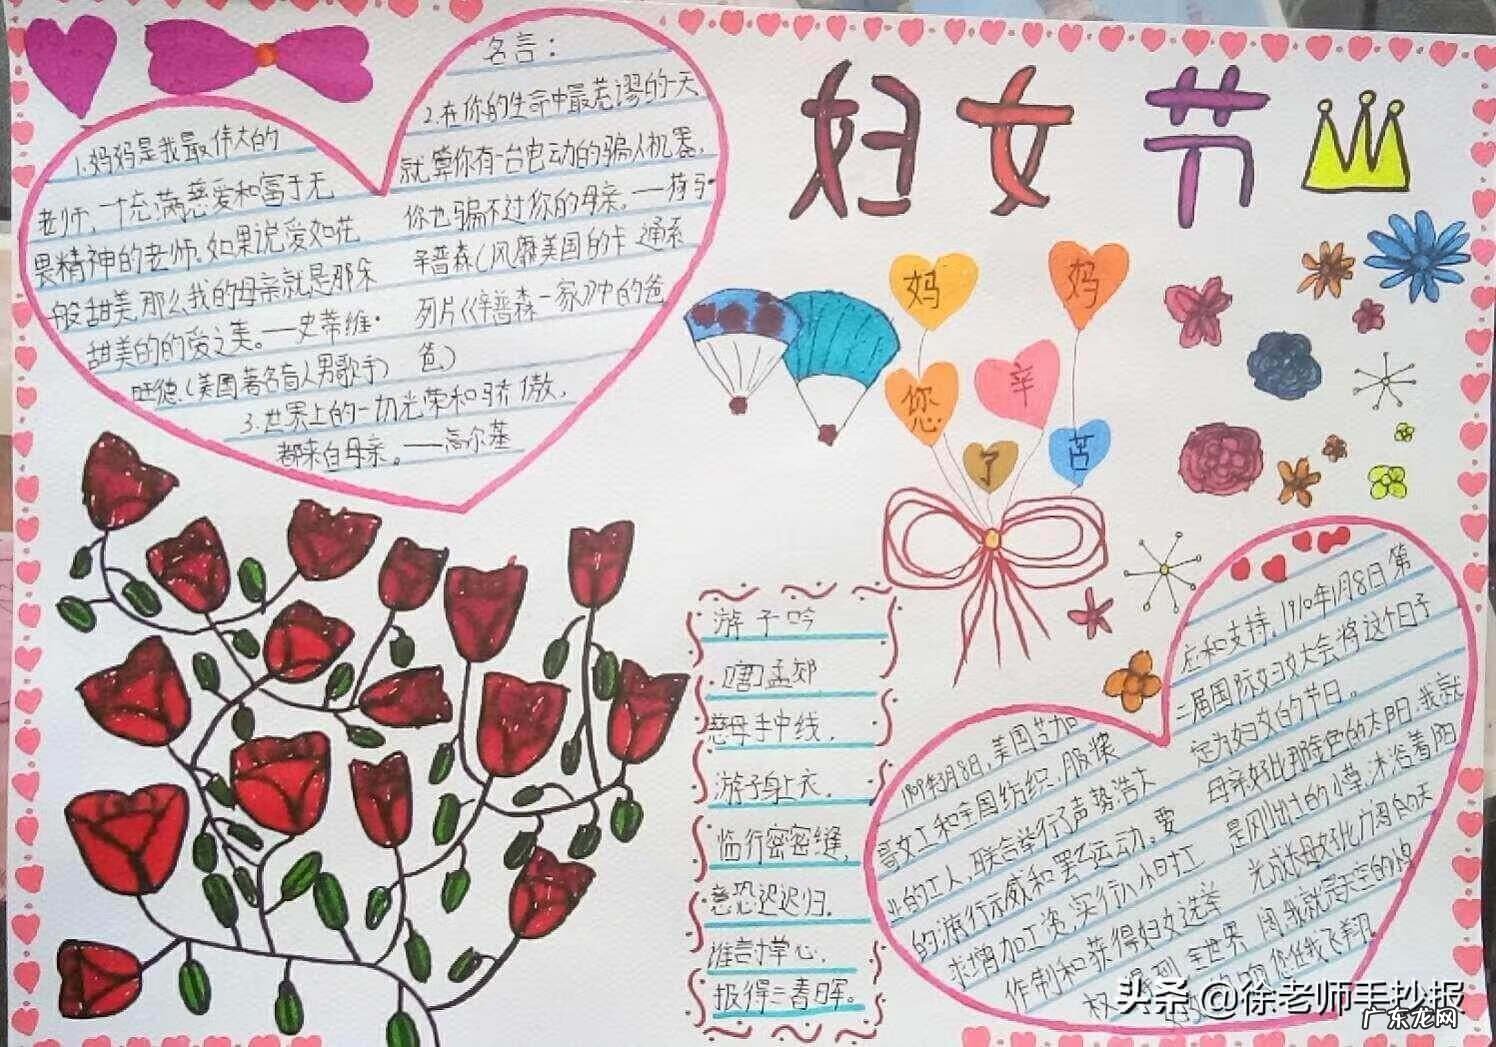 名言：
1.妈妈是我最伟大的
老师，一个充满慈爱和富于无
畏精神的老师。如果说爱如花
般甜美，那么我的母亲就是那朵
甜美的的爱之美。——史蒂维·
旺德（美国著名盲人男歌手）
2.在你的生命中最荒谬的一天
就算你有一台电动的骗人机器，
你也骗不过你的母亲。——荷马·
辛普森（风靡美国的卡通系
列片《辛普森一家》中的爸
爸）
3.世界上的一切光荣和骄傲，
都来自母亲。——高尔基
妇女节
妈 妈
您 辛
了 苦
游子吟
[唐]孟郊
慈母手中线，
游子身上衣，
临行密密缝，
意恐迟迟归，
谁言寸草心，
报得三春晖。
年3月8日，美国芝加
哥女工和全国纺织、服装
业的工人，联合举行了声势浩大
的游行示威和罢工运动，要
求增加工资，实行八小时工
作制和获得妇女选举
权 得到 全世界
应和支持，1910年1月8日第
二届国际妇女大会将这个日子
定为妇女的节日。
母亲好比那金色的太阳，我就
是刚出土的小草，沐浴着阳
光成长
您任我飞翔
头条 @徐老师手抄报
广东龙网